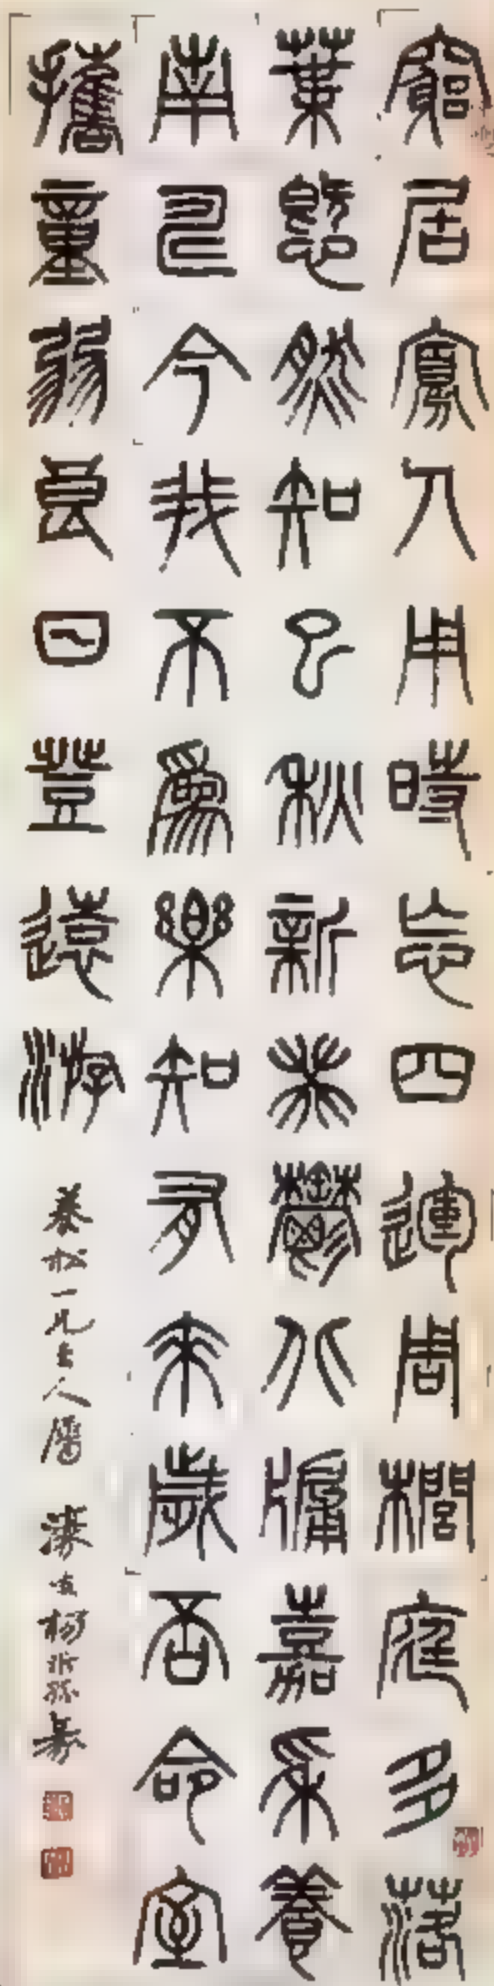 窮居寡人用時忘四運周櫚庭多落
葉慨然知已秋新葵鬱北牖嘉穗養
南疇今我不為樂知有來歲否命室
攜童弱良日登遠游
養松一兄大人屬 濠叟楊沂孫篆